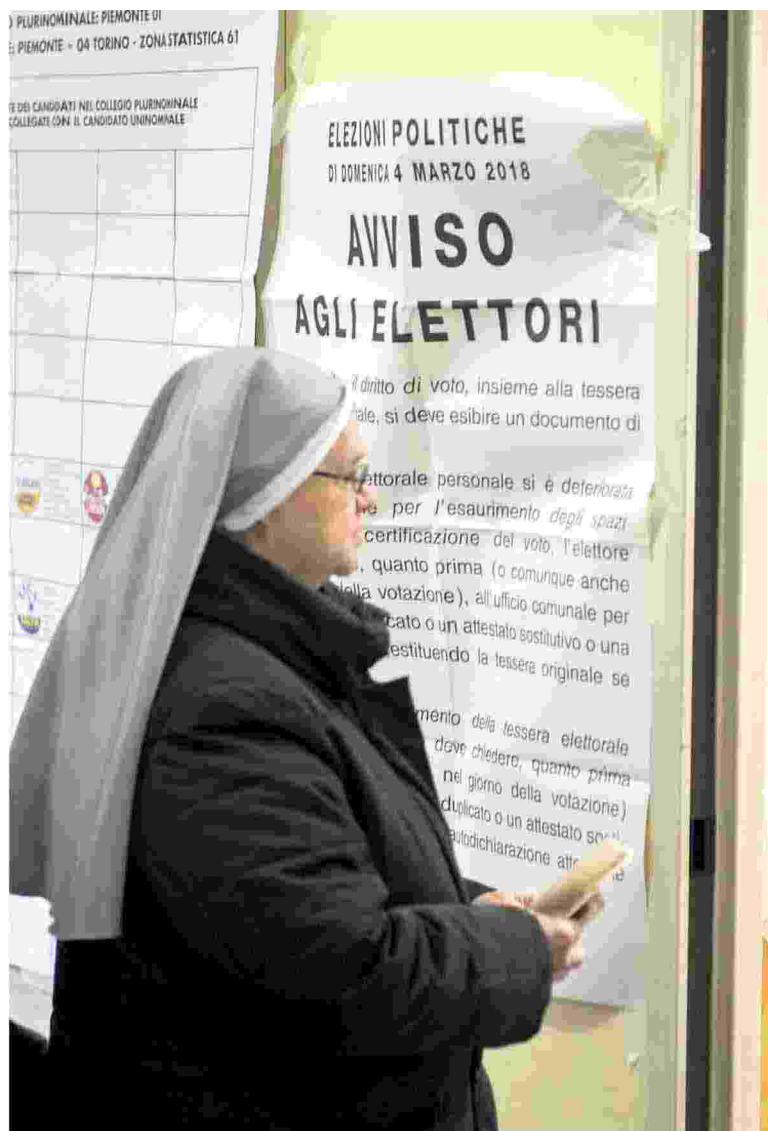 PLURINOMINALE: PIEMONTE 01
PIEMONTE - 04 TORINO - ZONA STATISTICA 61
DEI CANDIDATI NEL COLLEGIO PLURINOMINALE
COLLEGATE CON IL CANDIDATO UNINOMINALE
ELEZIONI POLITICHE
DI DOMENICA 4 MARZO 2018
AVVISO
AGLI ELETTORI
il diritto di voto, insieme alla tessera
ale, si deve esibire un documento di
ettorale personale si è deteriorata
e per l'esaurimento degli spazi
certificazione del voto, l'elettore
, quanto prima (o comunque anche
della votazione), all'ufficio comunale per
cato o un attestato sostitutivo o una
estituendo la tessera originale se
mento della tessera elettorale
deve chiedere, quanto prima
nel giorno della votazione)
duplicato o un attestato sosti
autodichiarazione atte